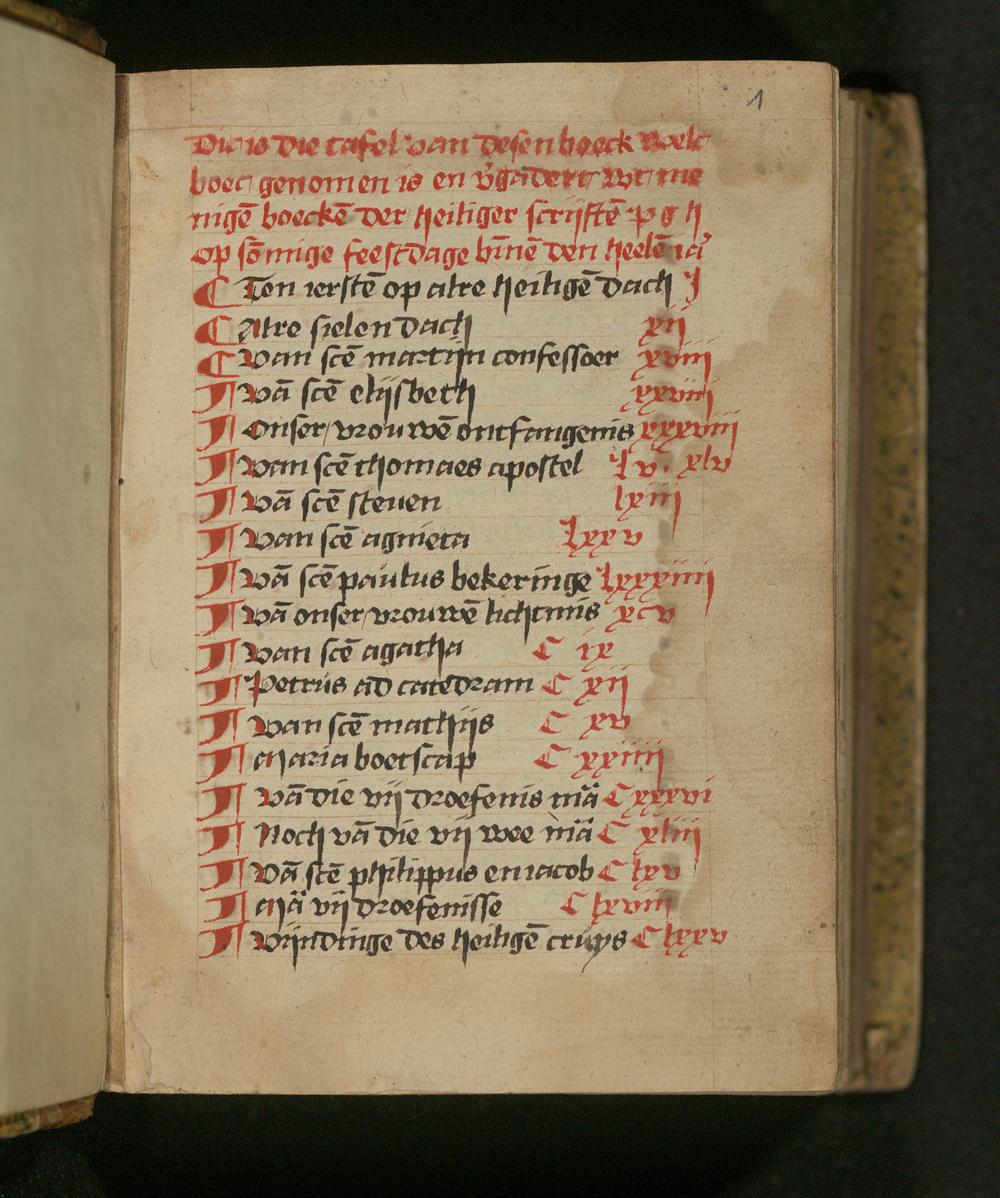 1
Dit is die tafel van desen boeck welc
boec genomen is en v̉gadert wt me
nigē boeckē der heiliger scrijftē
op sōmige feestdage bīnē den heelē iaʼ
¶ Ten iersten op alre heiligē dach j
¶ Alre sielen dach xij
¶ Van scē martijn confessoer xviij
¶ Vā scē elijsbeth xxviij
¶ Onser vrouwē ontfangenis xxxviij
¶ Van scē thomaes apostel lv xlv
¶ Vā scē steven lxiij
¶ Van scē agnieta lxxv
¶ Vā scē paulus bekeringe lxxxiiij
¶ Vā onser vrouwē lichtmis xcv
¶ Van scē agatha C ix
¶ Petrus ad catedram C xij
¶ Van scē mathijs C xv
¶ Maria boetscap C xxiiij
¶ Vā die vij droefenis mā C xxxvi
¶ Noch vā die vij wee mā C xliij
¶ Vā scē philippus en iacob C lxv
¶ Mā vij droefenisse C lxviij
¶ Vijndinge des heiligē cruys C lxxv